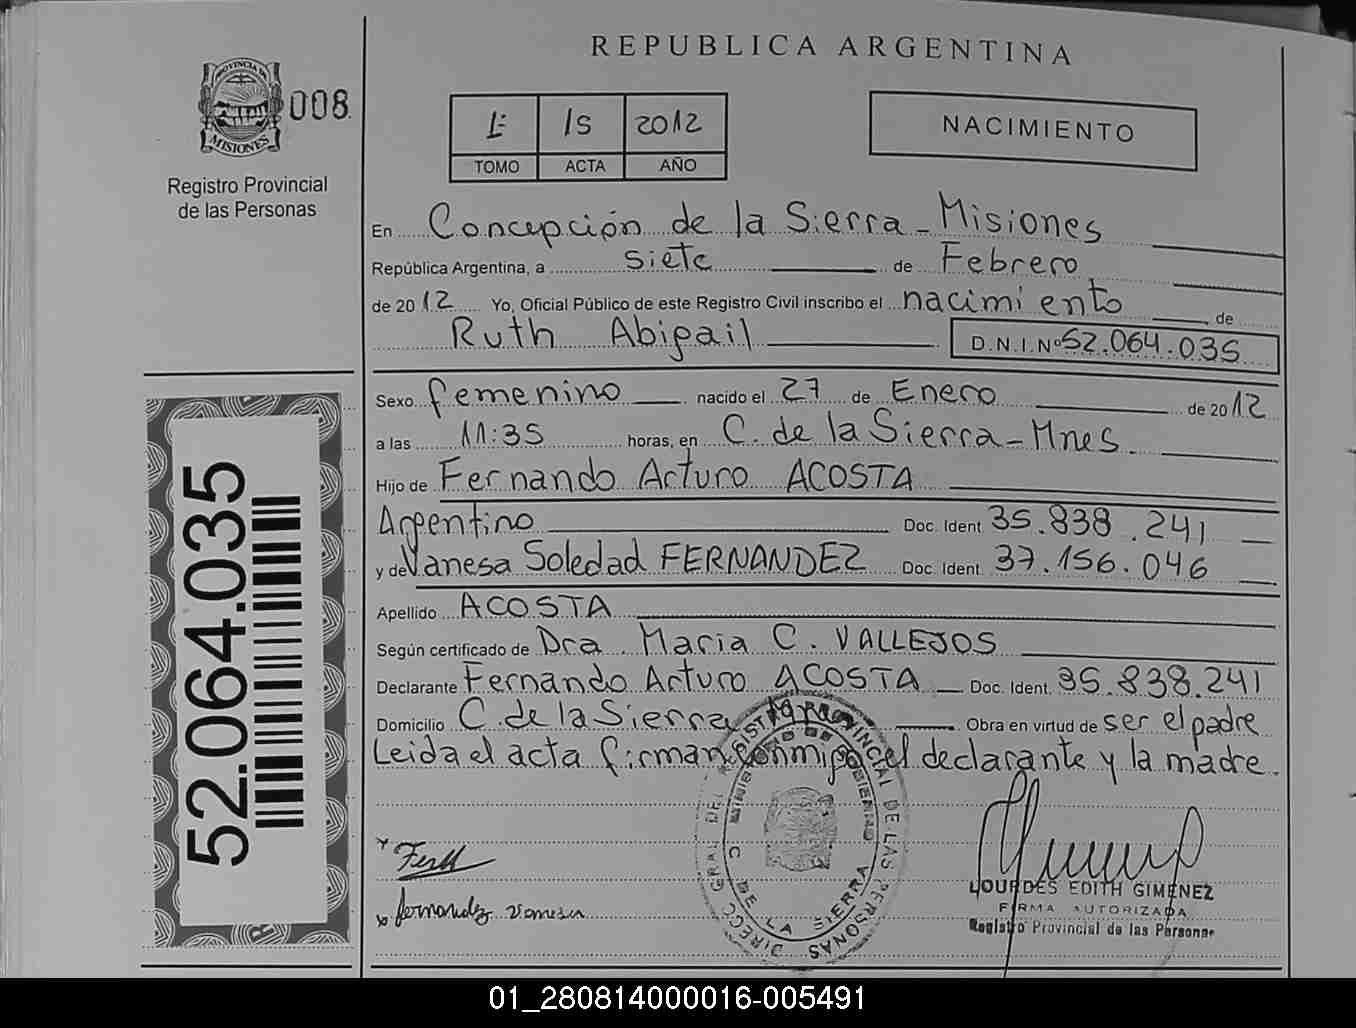 REPUBLICA ARGENTINA
PROVINCIA DE
MISIONES
008
Registro Provincial
de las Personas
1º 15 2012
TOMO ACTA AÑO
NACIMIENTO
En Concepción de la Sierra - Misiones
República Argentina, a siete de Febrero
de 2012 Yo, Oficial Público de este Registro Civil inscribo el nacimiento de
Ruth Abigail D.N.I. Nº 52.064.035
Sexo femenino nacido el 27 de Enero de 2012
a las 11:35 horas, en C. de la Sierra - Mnes.
Hijo de Fernando Arturo ACOSTA
Argentino Doc. Ident. 35.838.241
y de Vanesa Soledad FERNANDEZ Doc. Ident. 37.156.046
Apellido ACOSTA
Según certificado de Dra. Maria C. VALLEJOS
Declarante Fernando Arturo ACOSTA Doc. Ident. 35.838.241
Domicilio C. de la Sierra Obra en virtud de ser el padre
Leida el acta firman conmigo el declarante y la madre.
52.064.035
DIRECC. GRAL. DEL REGISTRO PROVINCIAL DE LAS PERSONAS
C. DE LA SIERRA
fernandez vanesa
LOURDES EDITH GIMENEZ
FIRMA AUTORIZADA
Registro Provincial de las Personas
01_280814000016-005491